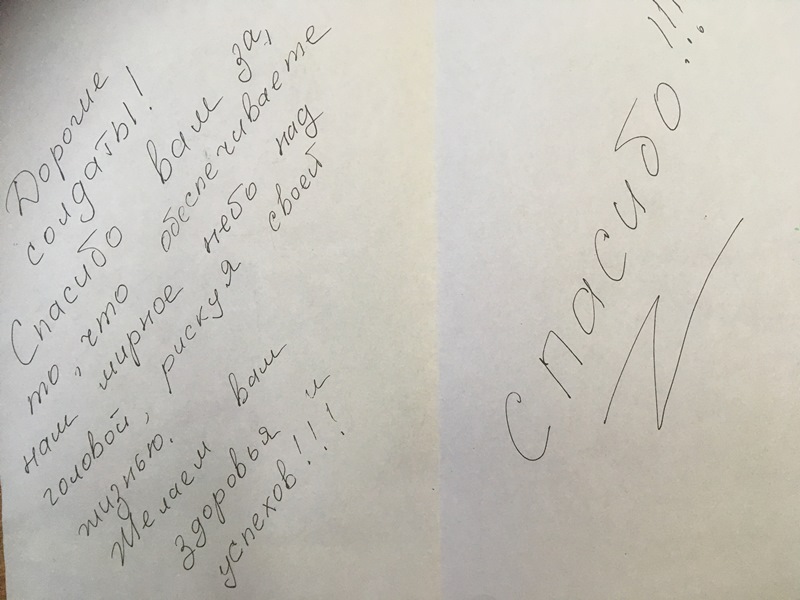 Дорогие
солдаты!
Спасибо вам за,
то, что обеспечиваете
нам мирное небо над
головой, рискуя своей
жизнью.
Желаем вам
здоровья и
успехов!!!
Спасибо!!!